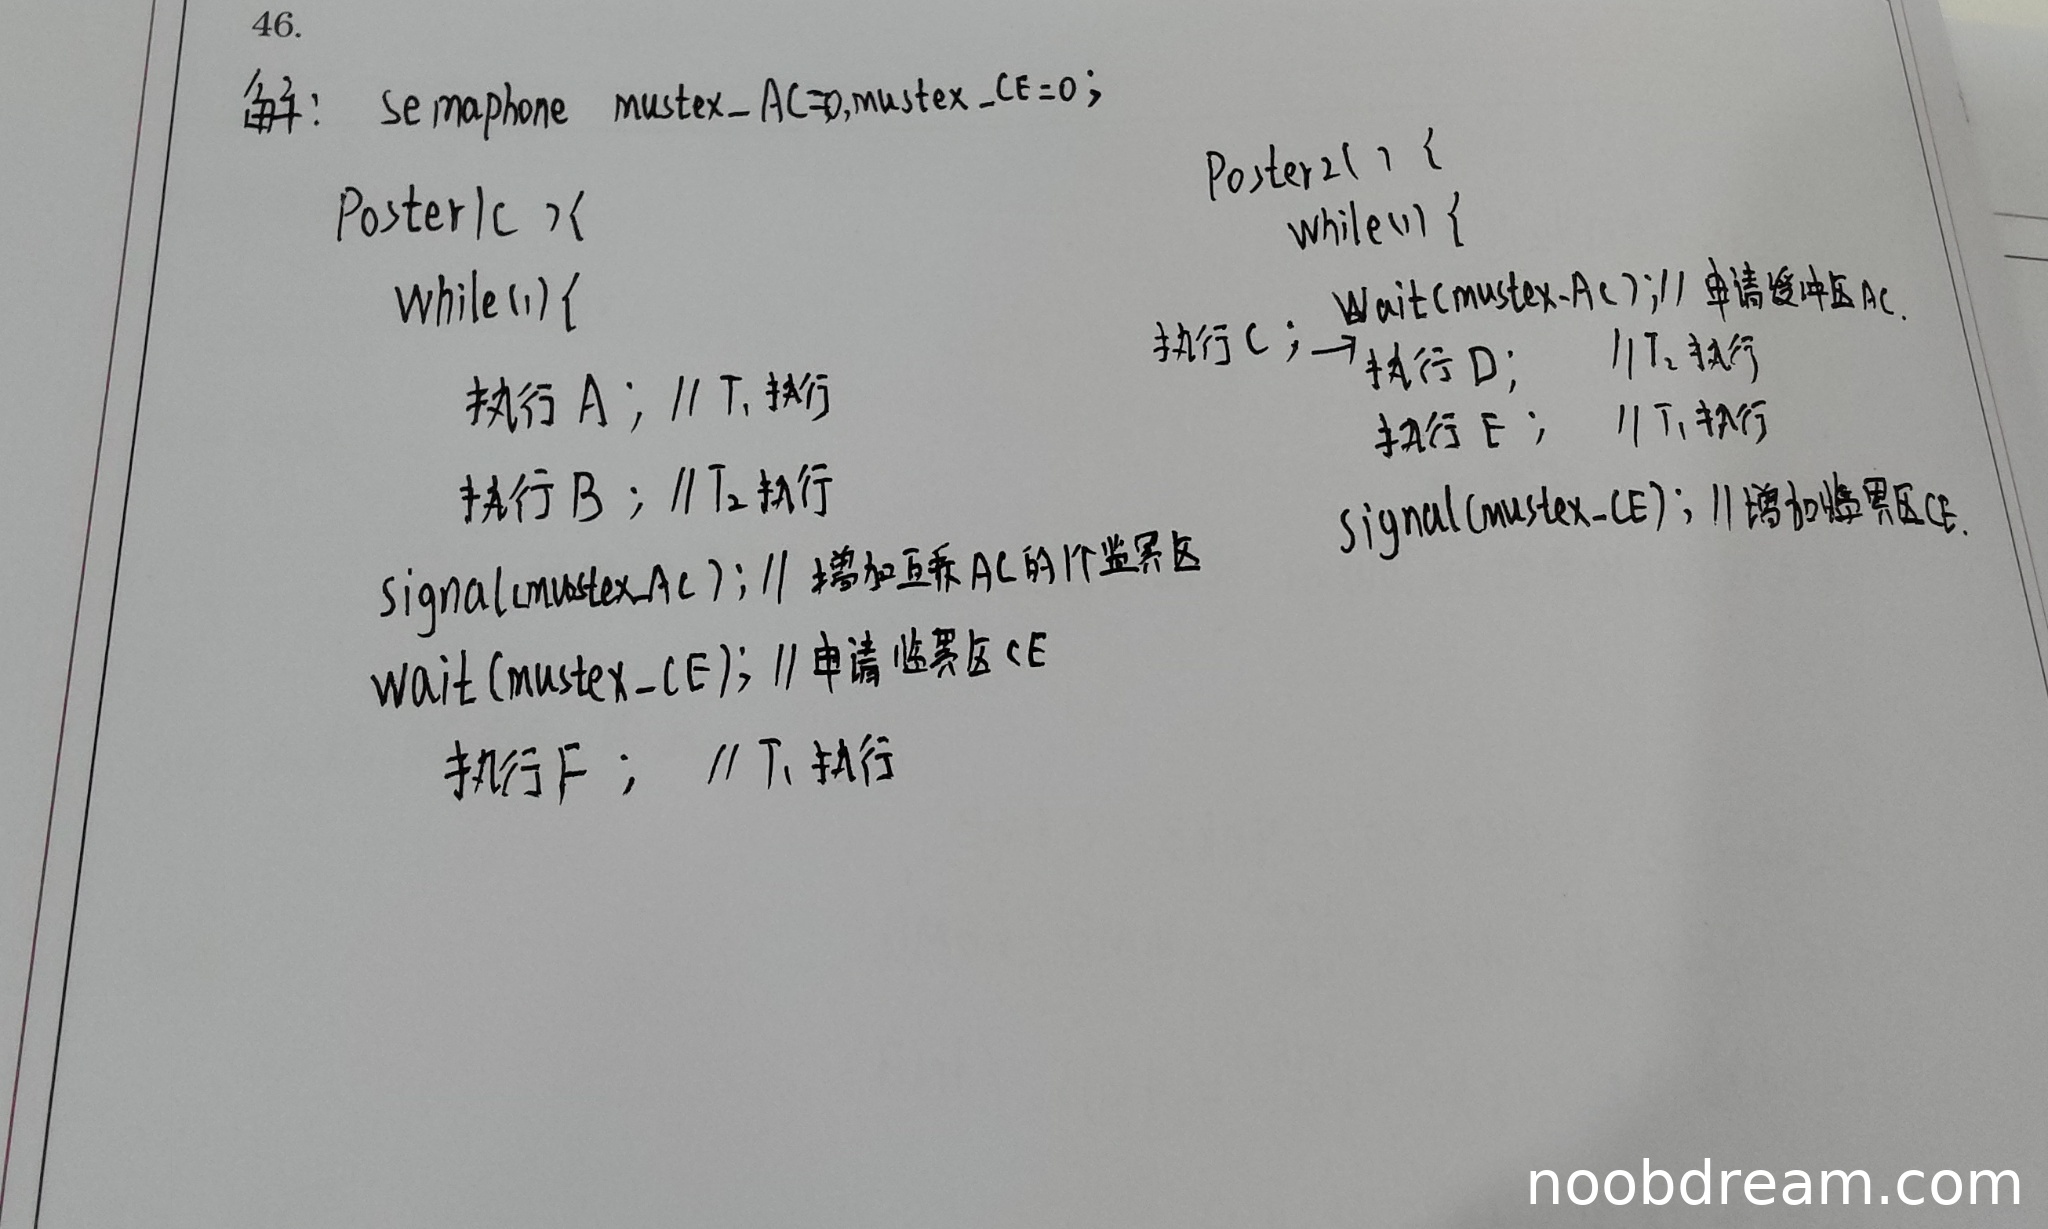 46.
解: semaphone mustex_AC=0,mustex_CE=0;
Poster1( ){
while(1){
执行 A ; // T1 执行
执行 B ; // T2 执行
signal(mustex_AC); // 增加互斥AC的1个监界区
wait(mustex_CE); // 申请临界区CE
执行 F ; // T1 执行
Poster2( ) {
while(1) {
wait(mustex-AC);// 申请缓冲区AC.
执行 C ; →
执行 D; // T2 执行
执行 E ; // T1 执行
signal(mustex_CE); // 增加临界区CE.
noobdream.com